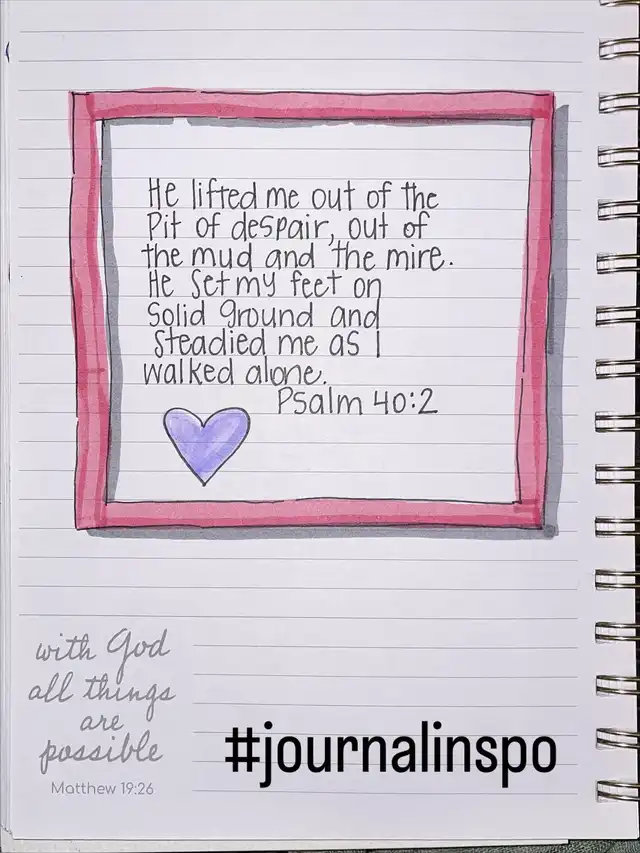 He lifted me out of the
Pit of despair, out of
the mud and the mire.
He set my feet on
Solid ground and
Steadied me as I
walked alone.
Psalm 40:2
with God
all things
are
possible
Matthew 19:26
#journalinspo